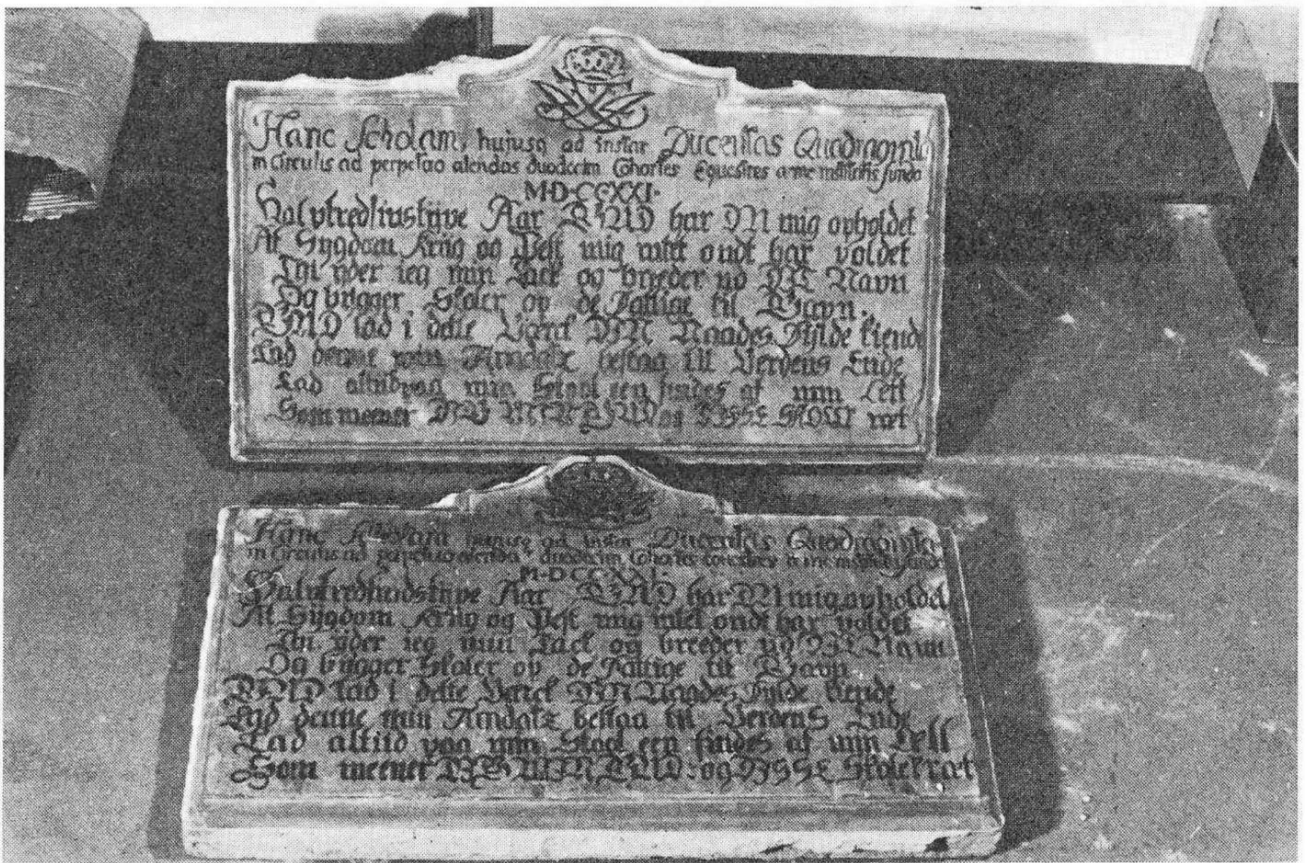 Hanc Scholam, hujusq ad instar Ducentas Quadraginta
in Circulis ad perpetuo alendas duodecim Cohortes Equestres a me institutis fundo
MDCCXXI.
Halvfredsinstyve Aar GUD har DU mig opholdet
At Sygdom Kriig og Pest mig intet ondt har voldet
Thi yder ieg min Tack og breeder ud DIT Navn
Og bygger Skoler op de Fattige til Gavn.
GUD lad i dette Verck DIN Naades Fylde kiende
Lad denne min Fundatz bestaa til Verdens Ende
Lad altiid paa min Stool een findes af min Lett
Som meener DIG MIN GUD og DISSE SKOLER ret
Hanc Scholam hujusq ad instar Ducentas Quadraginta
in Circulis ad perpetuo alendas duodecim Cohortes Equestres a me institutis fundo
M.DCCXXI.
Halvfredsindstyve Aar GUD har DU mig opholdet
At Sygdom Kriig og Pest mig intet ondt har voldet
Thi yder ieg min Tack og breeder ud DIT Navn
Og bygger Skoler op de Fattige til Gavn
GUD lad i dette Verck DIN Naades Fylde kiende
Lad denne min Fundatz bestaa til Verdens Ende
Lad altiid paa min Stool een findes af min Lett
Som meener DIG MIN GUD og DISSE Skoler ret